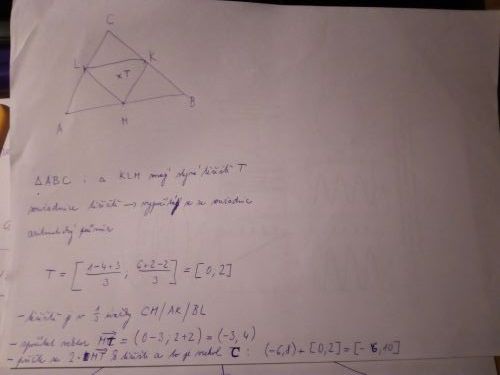 C
L K
×T
A M B
△ABC i a KLM mají stejné těžiště T
souřadnice těžiště → vypočítají se ze souřadnic
aritmetický průměr
T = [ (1-4+3)/3 ; (6+2-2)/3 ] = [0,2]
- těžiště je v 1/3 CM/AK/BL
- vektor MT = (0-3; 2+2) = (-3,4)
2· MT k těžišti a to je vrchol C: (-6,8) + [0,2] = [-6,10]